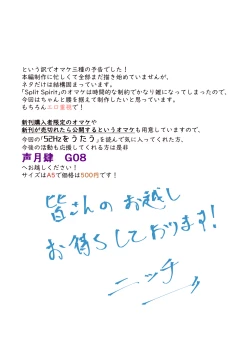 という訳でオマケ三種の予告でした！
本編制作に忙しくて全部まだ描き始めていませんが、
ネタだけは結構固まっています。
「Split Spirit」のオマケは時間的な制約でかなり雑になってしまったので、
今回はちゃんと腰を据えて制作したいと思います。
もちろんエロ重視で！
新刊購入者限定のオマケや
新刊が売切れたら公開するというオマケも用意していますので、
今回の「52Hzをうたう」を読んで気に入ってくれた方、
今後の活動も応援してくれる方は是非
声月肆　G08
へお越しください！
サイズはA5で価格は500円です！
皆さんのお越し
お待ちしております！
ニッチ